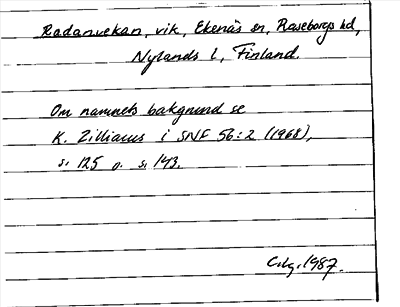 Radanvekan, vik, Ekenäs sn, Raseborgs hd,
Nylands l, Finland.
Om namnets bakgrund se
K. Zilliacus i SNF 56:2 (1968),
s. 125 o. s. 143.
C.lg. 1987.